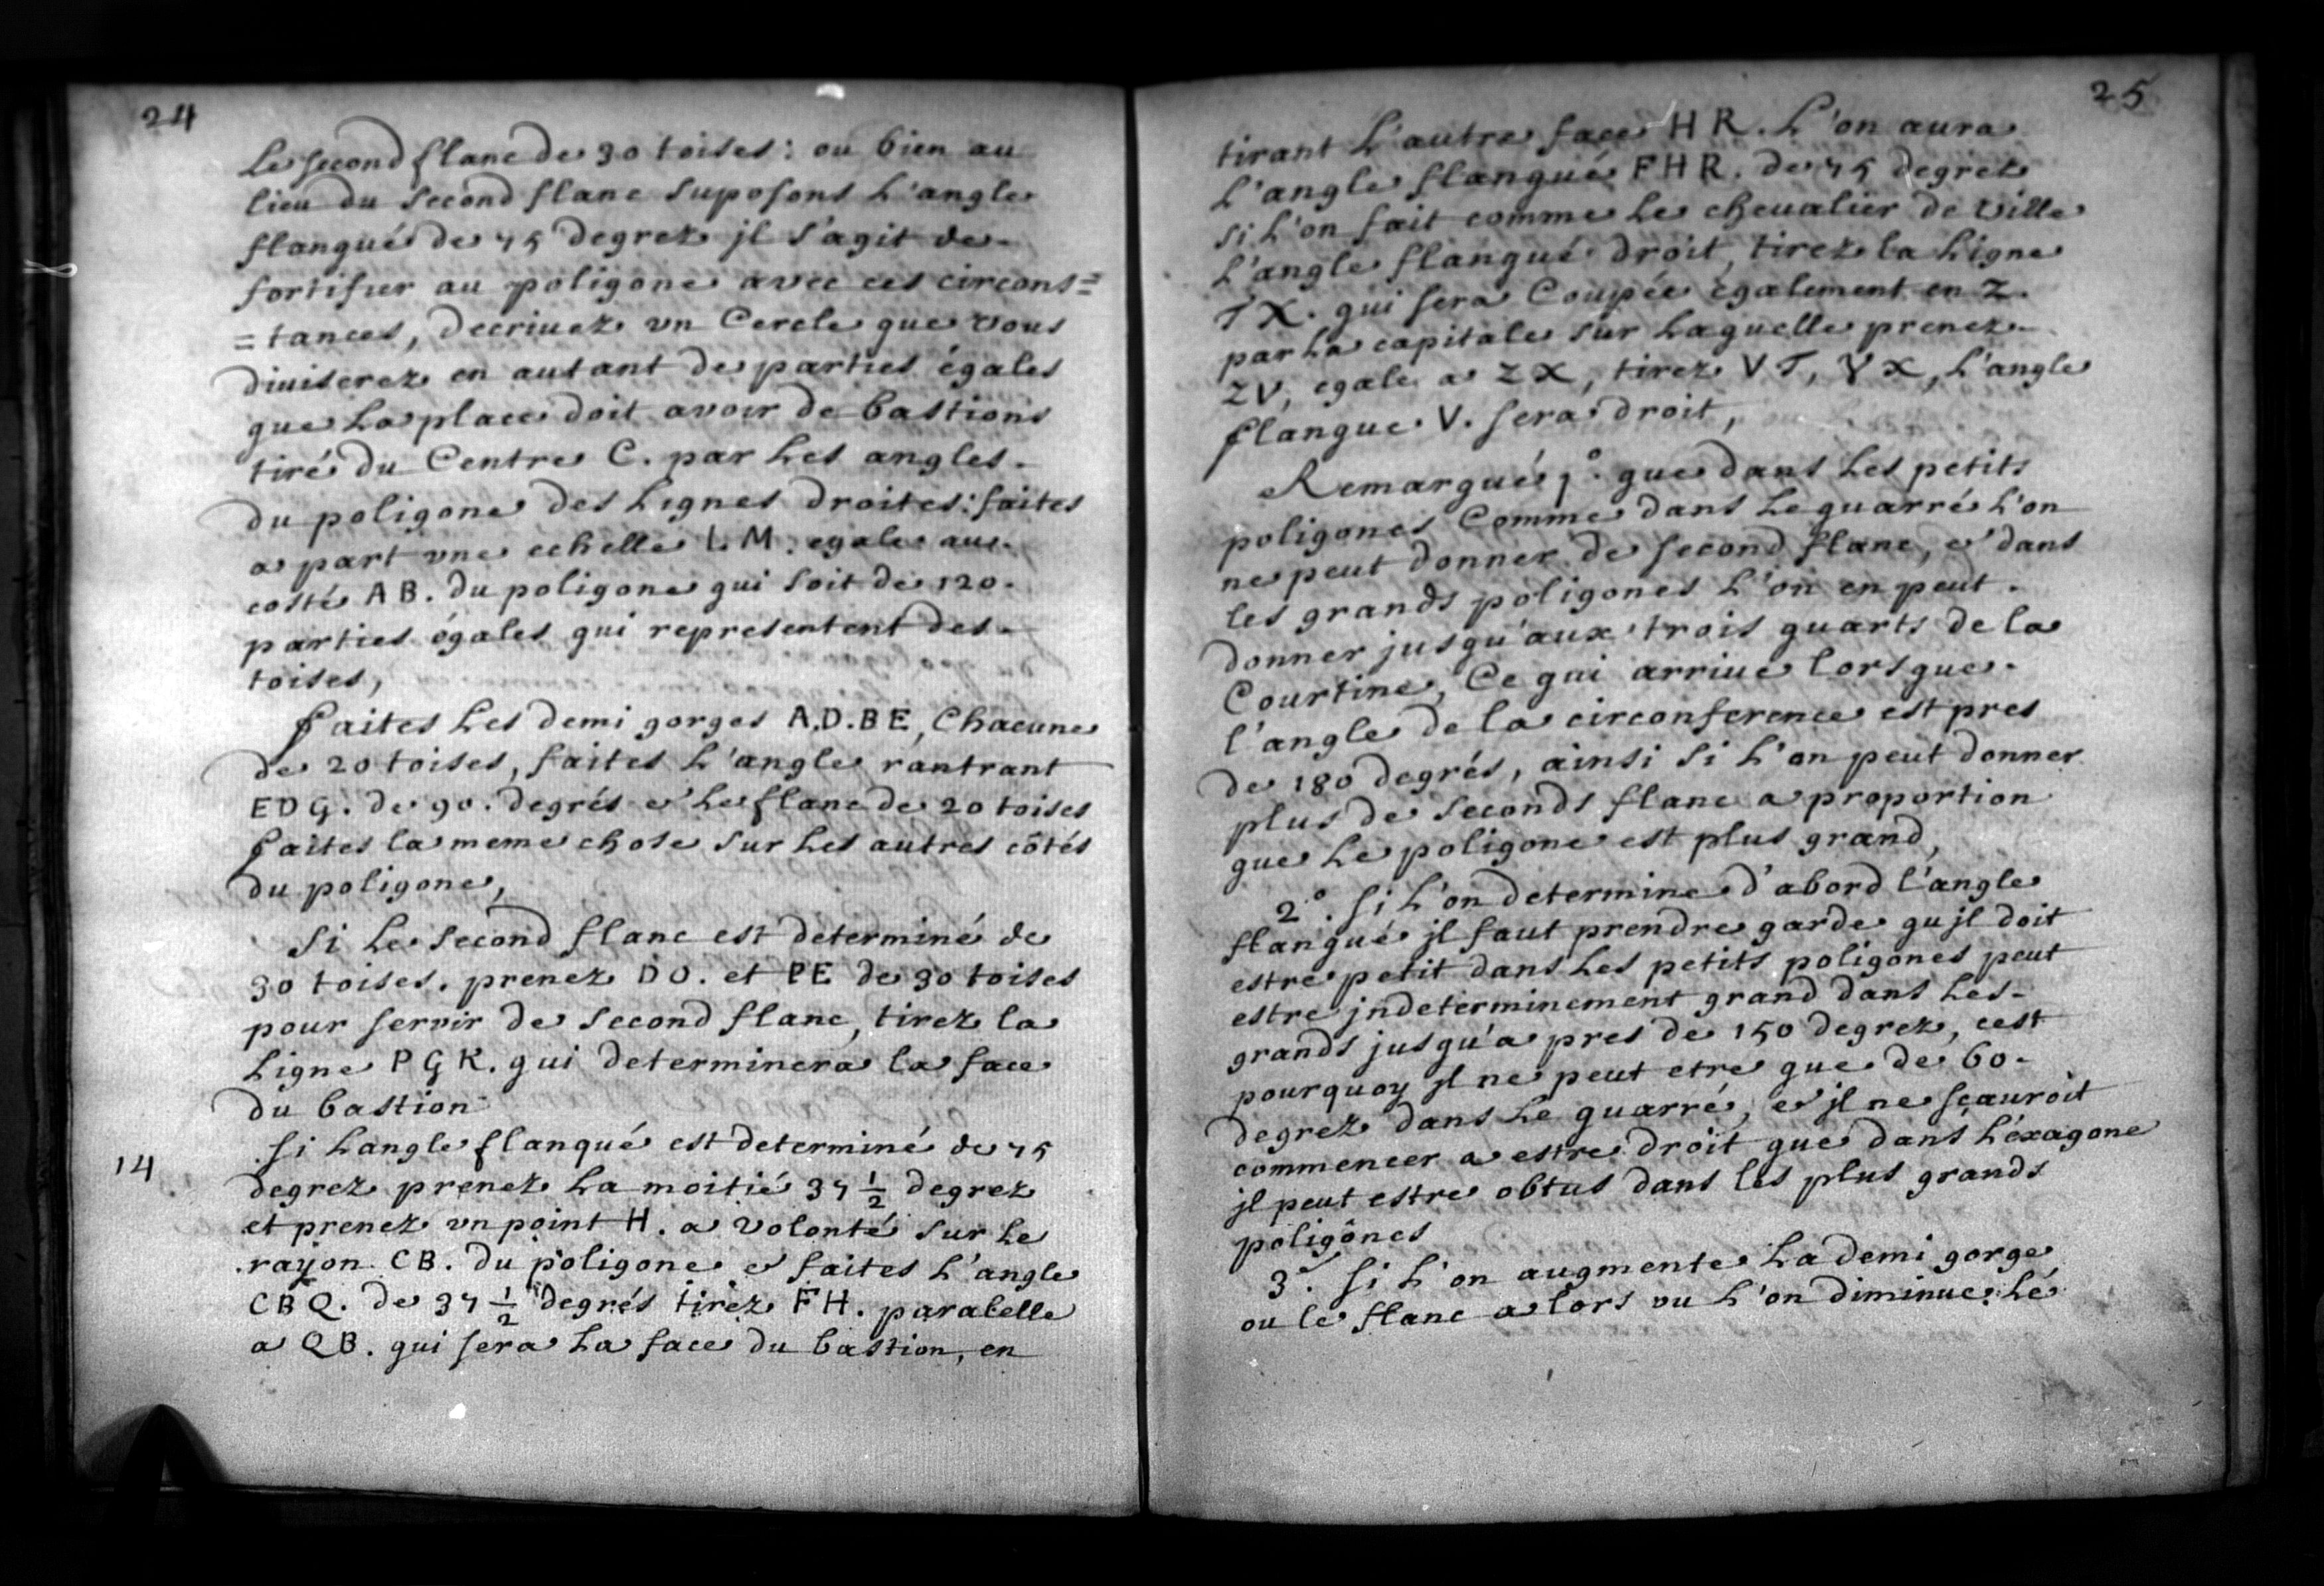 24
Le second flanc de 30 toises : ou bien au
lieu du second flanc suposons l'angle
flanqué de 75 degrez jl s'agit de
fortifier au poligone avec ces circons=
=tances, decriuez vn Cercle que vous
diuiserez en autant de parties égales
que la place doit avoir de bastions
tiré du Centre C. par les angles
du poligone des lignes droites : faites
a part vne echelle LM. egale au
costé AB. du poligone qui soit de 120
parties égales qui representent des
toises,
faites les demi gorges A.D.BE, Chacune
de 20 toises, faites l'angle rantrant
EDG. de 90. degrés et le flanc de 20 toises
faites la meme chose sur les autres côtés
du poligone,
Si le second flanc est determiné de
30 toises. prenez DO. et PE de 30 toises
pour servir de second flanc, tirez la
ligne PGK. qui determinera la face
du bastion
14
Si langle flanqué est determiné de 75
degrez prenez la moitié 37 1/2 degrez
et prenez vn point H. a volonté sur le
rayon CB. du poligone et faites l'angle
CBQ. de 37 1/2 degrés tirez FH. paralelle
a QB. qui sera la face du bastion, en
25
tirant l'autre face HR. L'on aura
l'angle flanqué FHR. de 75 degrez
si l'on fait comme le cheualier de ville
l'angle flanqué droit, tirez la ligne
TX. qui sera Coupée également en Z.
par la capitale sur laquelle prenez
ZV, egale a ZX, tirez VT, VX, l'angle
flanque V. sera droit,
Remarqué 1° que dans les petits
poligones Comme dans le quarré l'on
ne peut donner de second flanc, et dans
les grands poligones l'on en peut
donner jusqu'aux trois quarts de la
Courtine, Ce qui arriue lorsque
l'angle de la circonference est pres
de 180 degrés, ainsi si l'on peut donner
plus de seconds flanc a proportion
que le poligone est plus grand,
2° Si l'on determine d'abord l'angle
flanqué jl faut prendre garde qujl doit
estre petit dans les petits poligones peut
estre jndeterminement grand dans les
grands jusqu'a pres de 150 degrez, cest
pourquoy jl ne peut etre que de 60
degrez dans le quarré, et jl ne sçauroit
commencer a estre droit que dans l'éxagone
jl peut estre obtus dans les plus grands
poligônes
3° Si l'on augmente la demi gorge
ou le flanc alors ou l'on diminue le